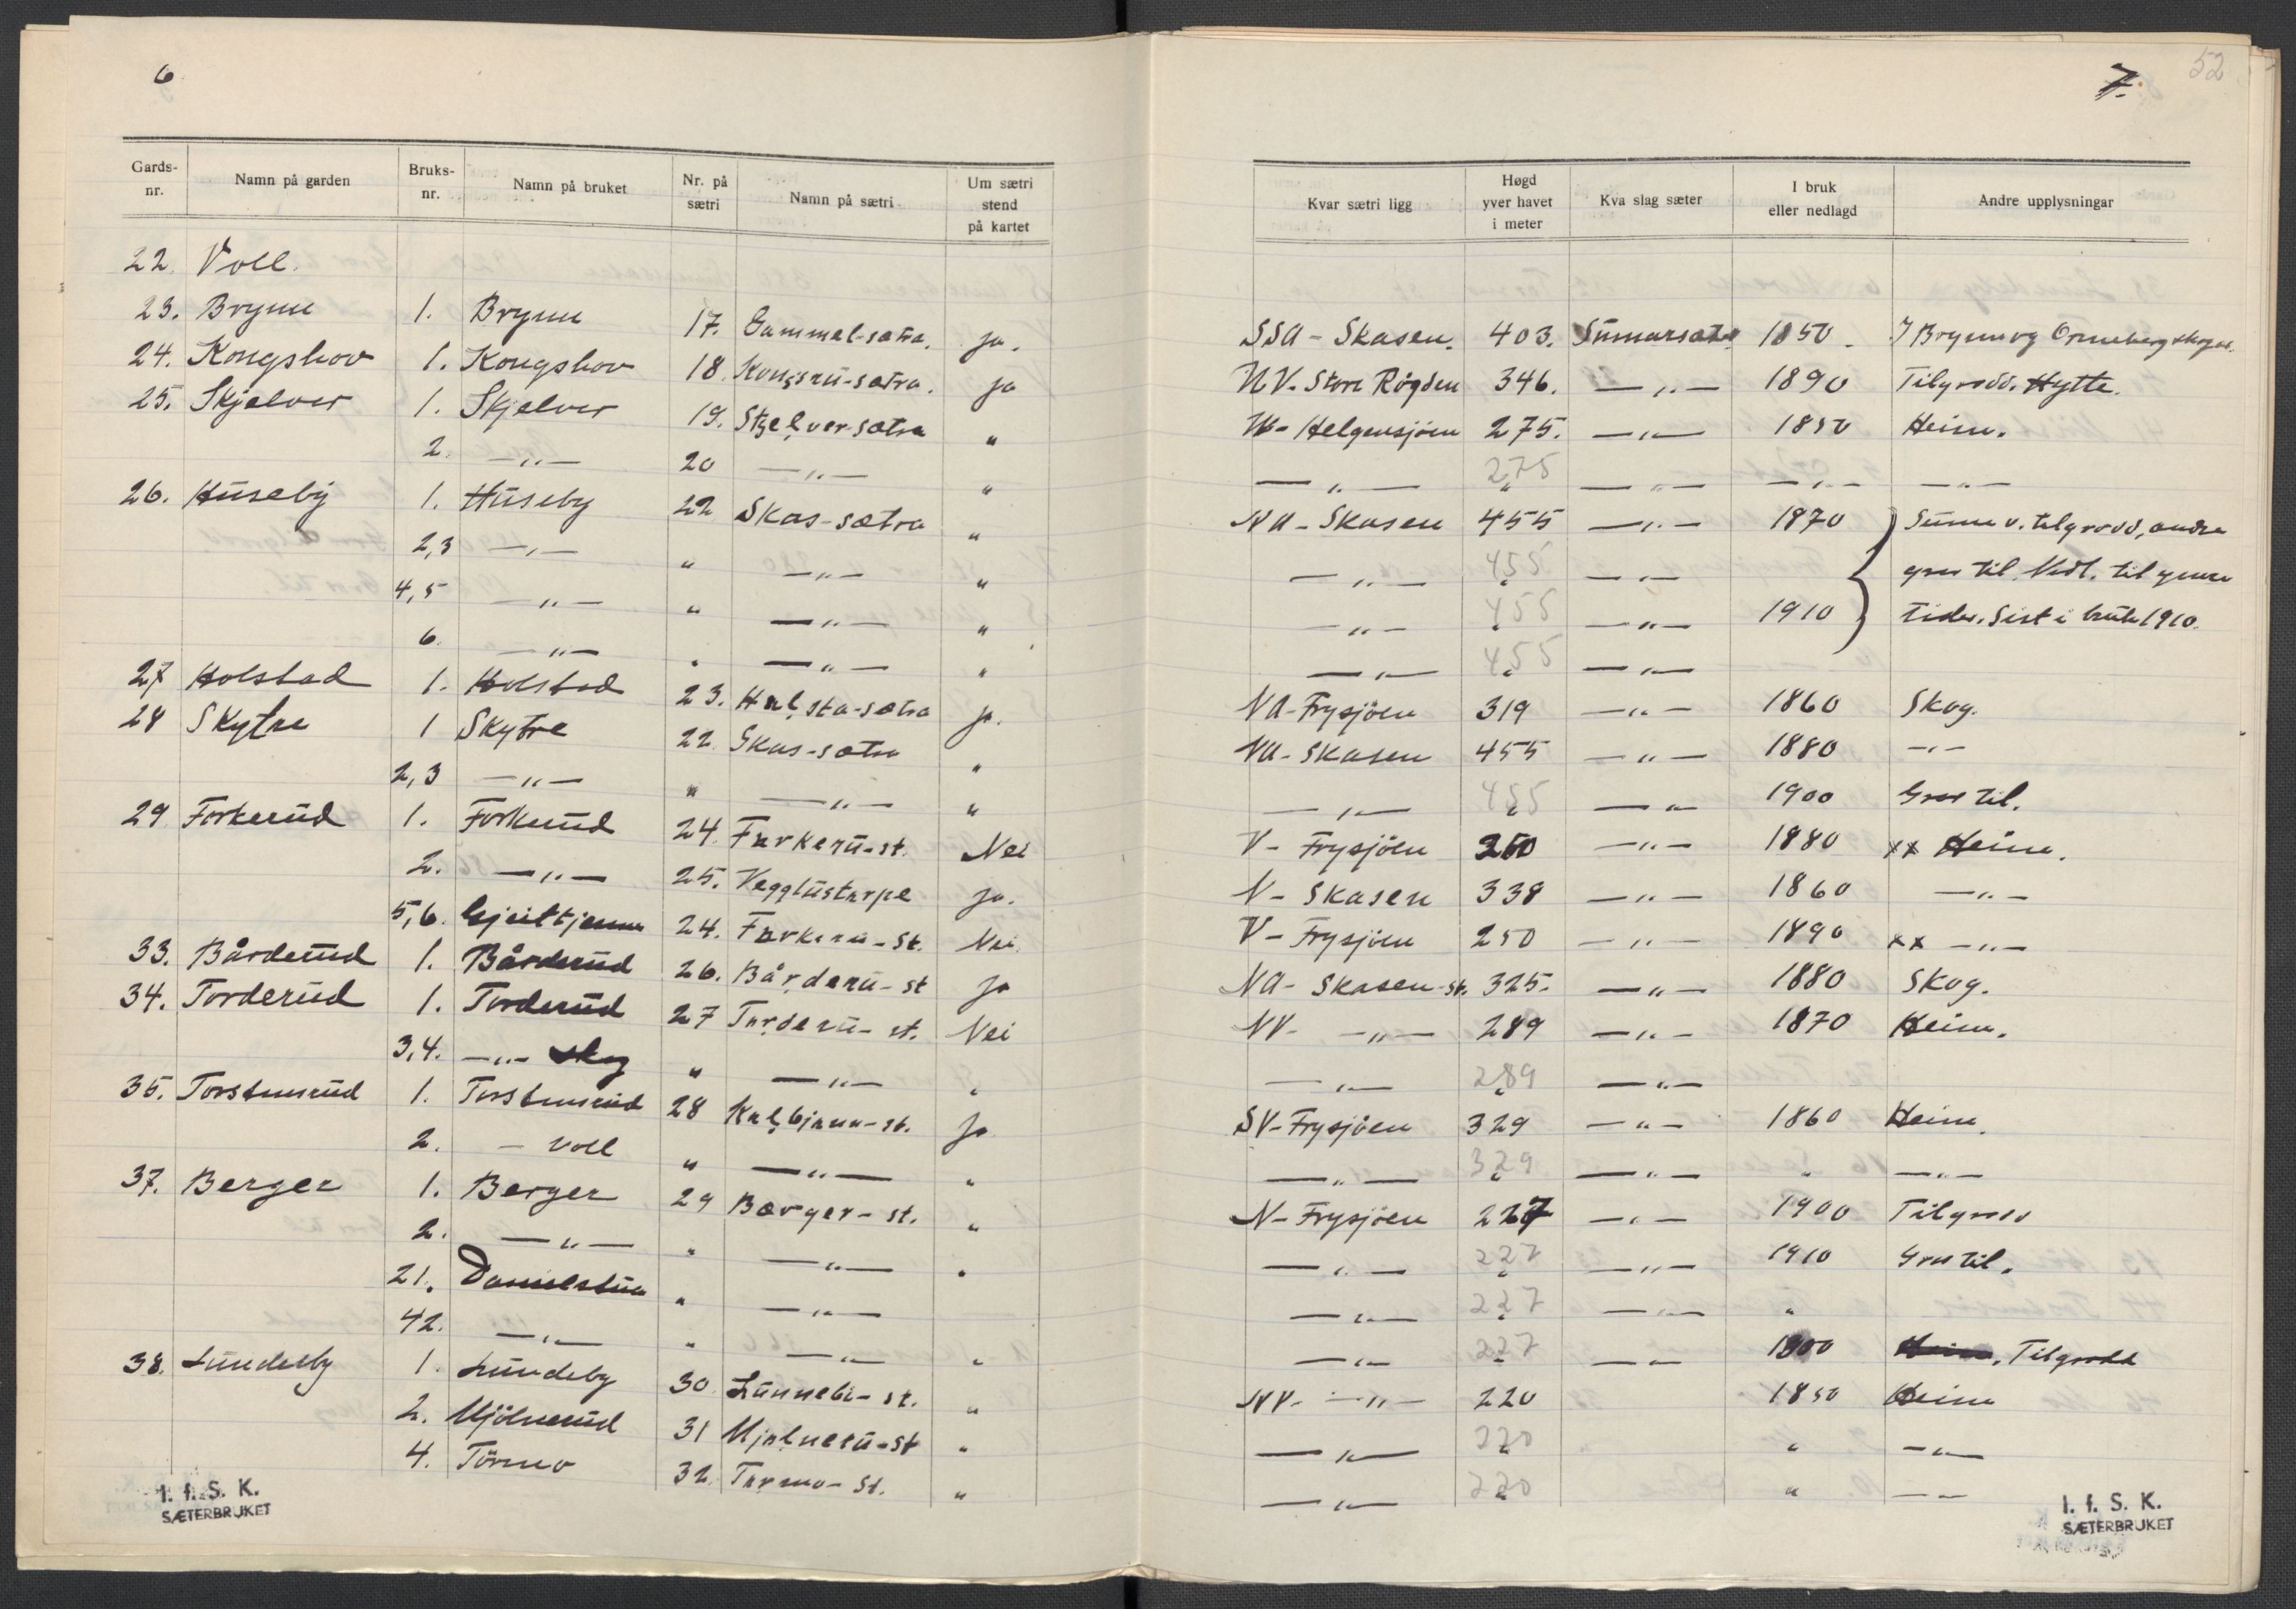 6
Gards-nr. Namn på garden Bruks-nr. Namn på bruket Nr. på sætri Namn på sætri Um sætri stend på kartet
22. Voll.
23. Brynn 1. Brynn 17. Gammel-sætra. ja.
24. Kongshov 1. Kongshov 18. Kongsru-sætra. ja
25. Skjelver 1. Skjelver 19. Stjelver-sætra "
2. —"— 20 —"— "
26. Huseby 1. Huseby 22 Skas-sætra "
2,3 —"— " —"— "
4,5 —"— " —"— "
6. —"— " —"— "
27 Holstad 1. Holstad 23. Halsta-sætra ja.
28 Skytre 1 Skytre 22. Skas-sætra "
2,3 —"— " —"— "
29 Forkerud 1. Forkerud 24. Farkeru-st. Nei
2. —"— 25. Vegglustarpe ja.
5,6. Gjeittjenn 24. Farkeru-st. Nei.
33. Bårderud 1. Bårderud 26. Bårderu-st ja
34. Torderud 1. Torderud 27 Tarderu-st. Nei
3,4. —"— skog " —"— "
35. Torstensrud 1. Torstensrud 28 Kalbjenn-st. ja
2. — voll " —"— "
37. Berger 1. Berger 29 Bærger-st. "
2. —"— " —"— "
21. Danielstua " —"—
42. —"— " —"— "
38. Lundeby 1. Lundeby 30. Lunnebi-st. "
2. Mjölnerud 31 Mjølneru-st "
4. Törmo 32. Tørmo-st. "
I. f. S. K.
SÆTERBRUKET
7. 52
Kvar sætri ligg Høgd yver havet i meter Kva slag sæter I bruk eller nedlagd Andre upplysningar
SSA - Skasen. 403. Sumarsæter 1850. I Brynn og Orneberg skogar.
NV- Store Røgden 346. —"— 1890 Tilgrodd. Hytte.
NV- Helgensjöen 275. —"— 1850 Heim.
—"— 275 —"— —"— —"—
NA - Skasen 455 —"— 1870 Sume v. tilgrodd, andre
—"— 455 —"— gror til. Nedl. til ymse
—"— 455 —"— 1910 tider. Sist i bruk 1910.
—"— 455 —"—
NA-Frysjöen 319 —"— 1860 Skog.
NA - Skasen 455 —"— 1880 —"—
—"— 455 —"— 1900 Gror til.
V - Frysjöen 250 —"— 1880 xx Heim.
N - Skasen 338 —"— 1860 —"—
V - Frysjöen 250 —"— 1890 xx —"—
NA- Skasen-st. 325. —"— 1880 Skog.
NV- —"— 289 —"— 1870 Heim.
—"— 289 —"—
SV-Frysjöen 329 —"— 1860 Heim.
—"— 329 —"— " —"—
N-Frysjöen 227 —"— 1900 Tilgrodd
—"— 227 —"— 1910 Gror til.
—"— 227 —"— "
—"— 227 —"— 1900 Heim. Tilgrodd
NV- —"— 220 1850 Heim
—"— 220 " —"—
—"— 220 " —"—
I. f. S. K.
SÆTERBRUKET